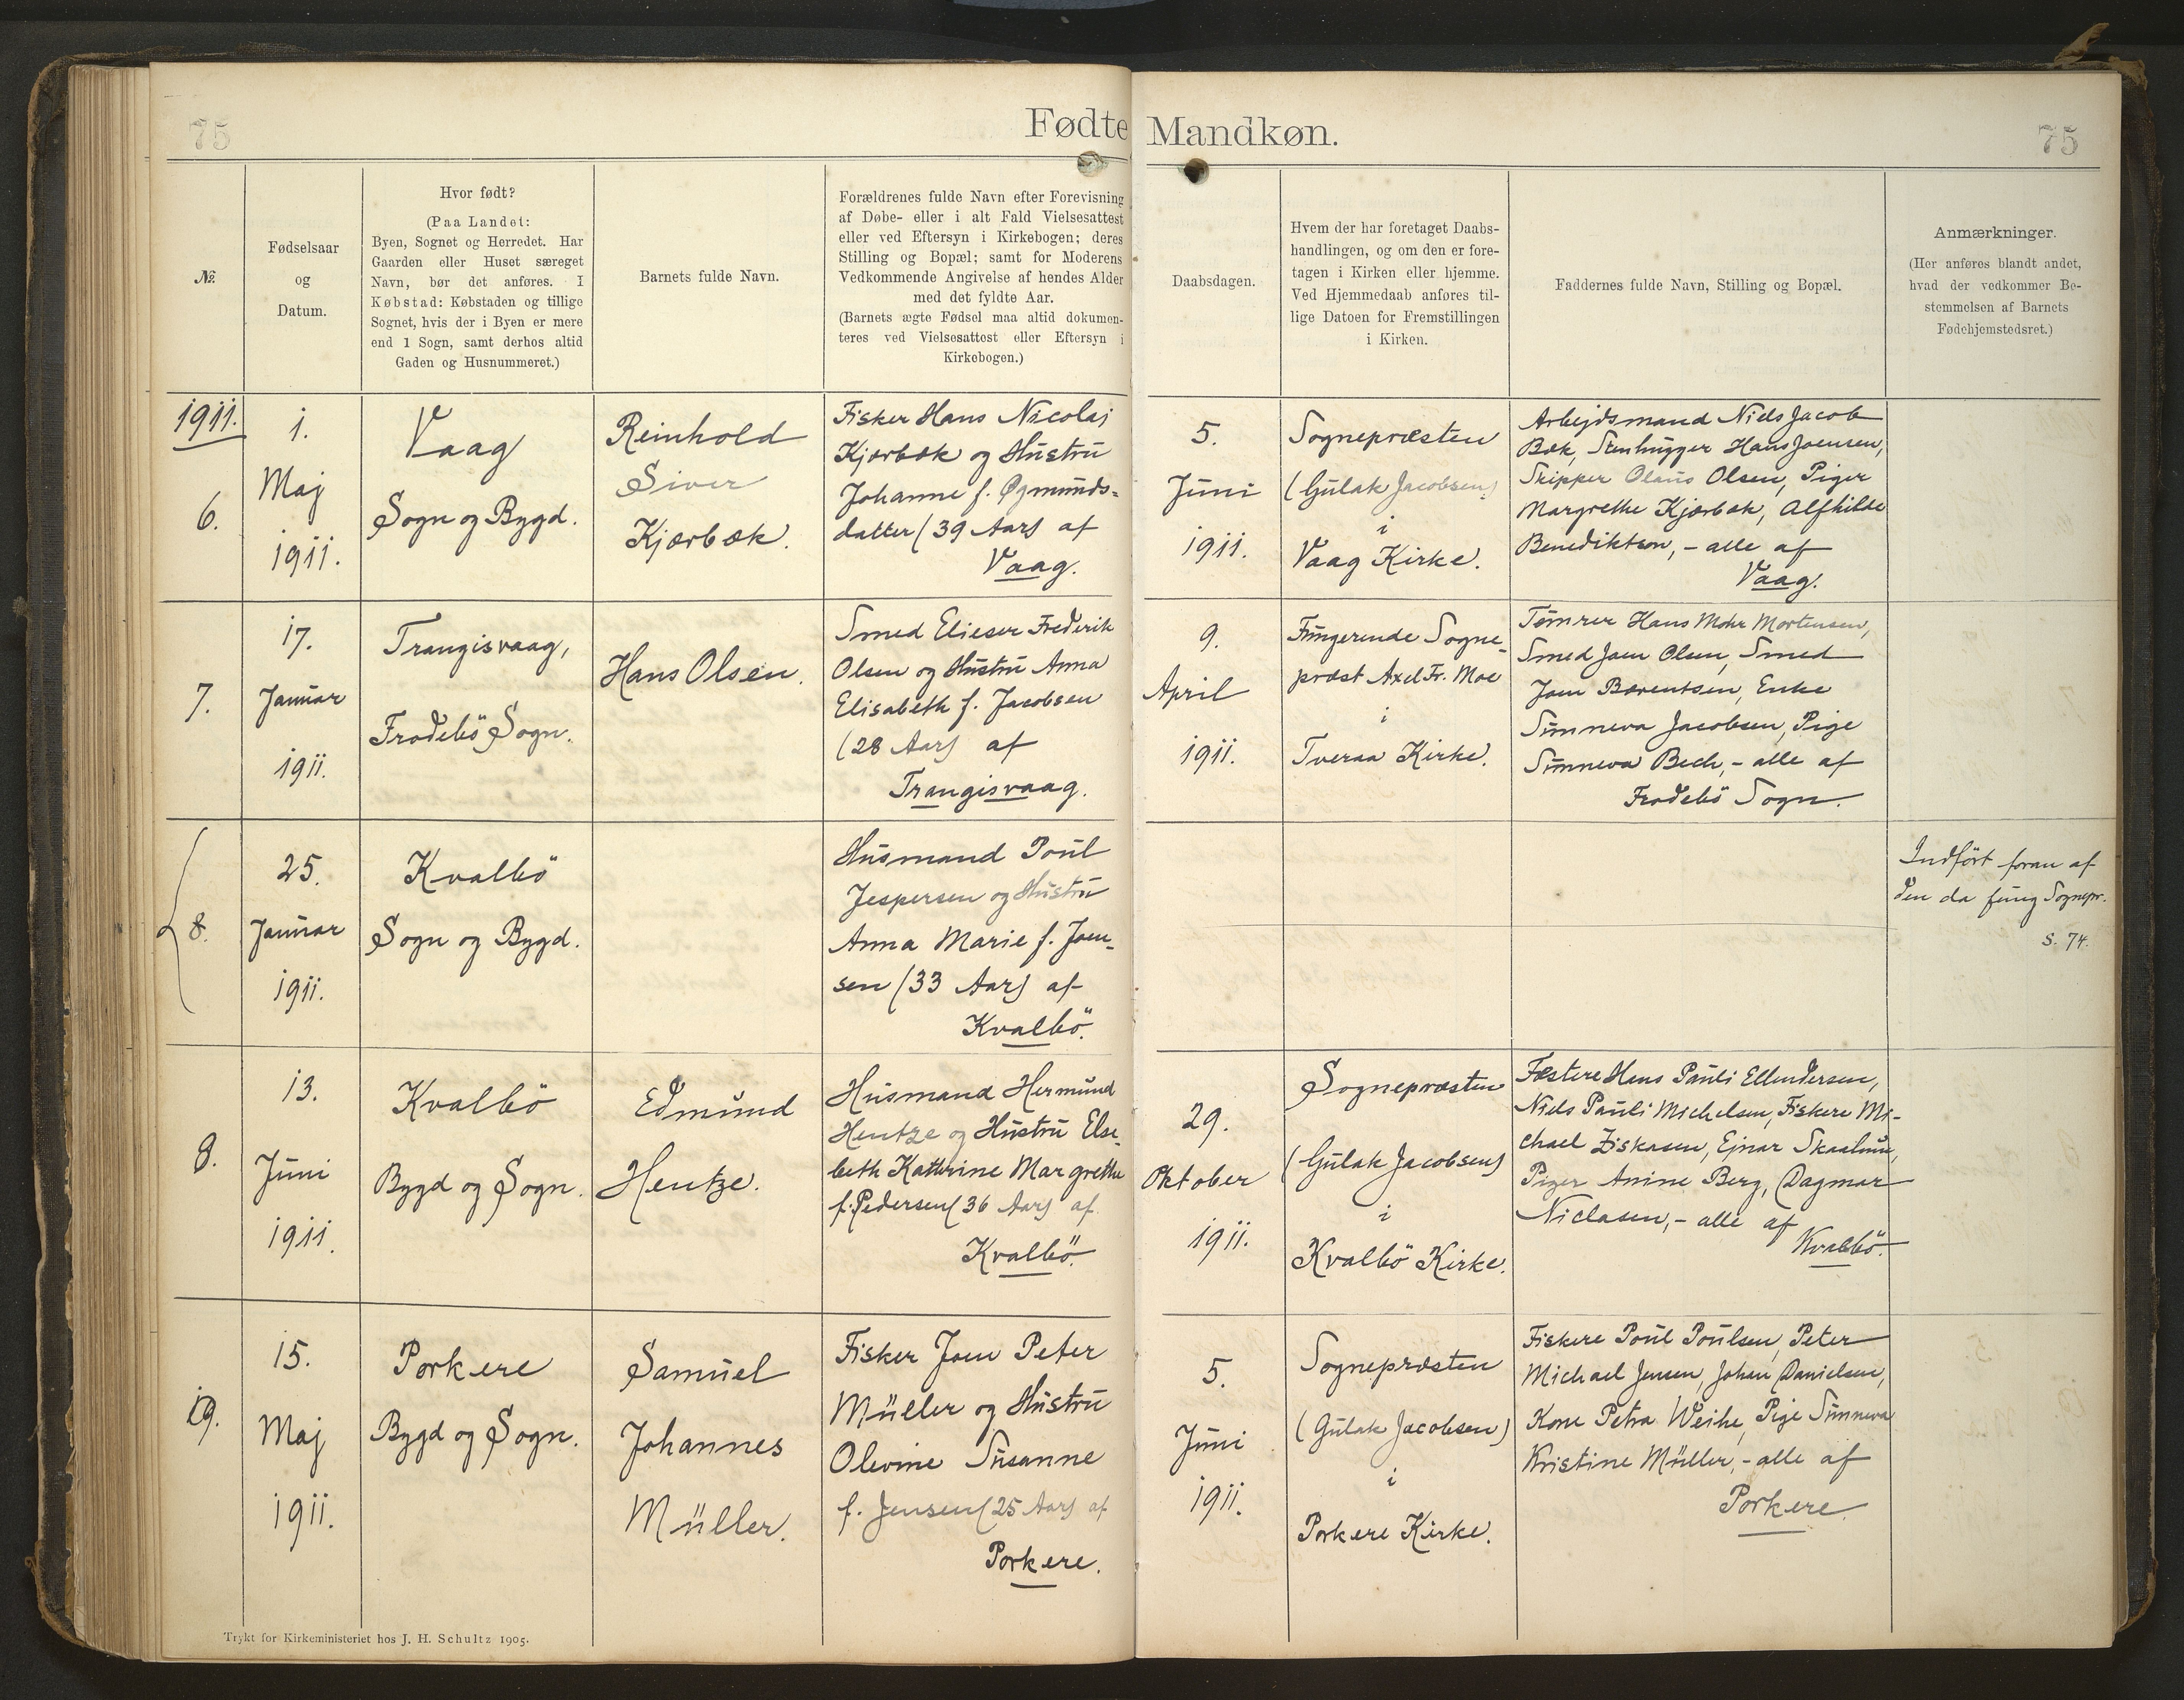 75
Fødte Mandkøn.
75
№
Fødselsaar
og
Datum.
Hvor født?
(Paa Landet:
Byen, Sognet og Herredet. Har
Gaarden eller Huset særeget
Navn, bør det anføres. I
Købstad: Købstaden og tillige
Sognet, hvis der i Byen er mere
end 1 Sogn, samt derhos altid
Gaden og Husnummeret.)
Barnets fulde Navn.
Forældrenes fulde Navn efter Forevisning
af Døbe- eller i alt Fald Vielsesattest
eller ved Eftersyn i Kirkebogen; deres
Stilling og Bopæl; samt for Moderens
Vedkommende Angivelse af hendes Alder
med det fyldte Aar.
(Barnets ægte Fødsel maa altid dokumen-
teres ved Vielsesattest eller Eftersyn i
Kirkebogen.)
Daabsdagen.
Hvem der har foretaget Daabs-
handlingen, og om den er fore-
tagen i Kirken eller hjemme.
Ved Hjemmedaab anføres til-
lige Datoen for Fremstillingen
i Kirken.
Faddernes fulde Navn, Stilling og Bopæl.
Anmærkninger.
(Her anføres blandt andet,
hvad der vedkommer Be-
stemmelsen af Barnets
Fødehjemstedsret.)
1911.
6.
1.
Maj
1911.
Vaag
Sogn og Bygd.
Reinhold
Siver
Kjærbæk.
Fisker Hans Nicolaj
Kjærbæk og Hustru
Johanne f. Øgmunds-
datter (39 Aar) af
Vaag.
5.
Juni
1911.
Sognepræsten
(Gulak Jacobsen)
i
Vaag Kirke.
Arbejdsmand Niels Jacob
Bæk, Stenhugger Hans Joensen,
Skipper Olaus Olsen, Piger
Margrethe Kjærbæk, Alfhilde
Benediktsen, - alle af
Vaag.
7.
17.
Januar
1911.
Trangisvaag,
Frodebö Sogn.
Hans Olsen.
Smed Elieser Frederik
Olsen og Hustru Anna
Elisabeth f. Jacobsen
(28 Aar) af
Trangisvaag.
9.
April
1911.
Fungerende Sogne-
præst Axel Fr. Moe
i
Tveraa Kirke.
Tømrer Hans Mohr Mortensen,
Smed Joen Olsen, Smed
Joen Bærentsen, Enke
Sunneva Jacobsen, Pige
Sunneva Bech, - alle af
Frodebö Sogn.
8.
25.
Januar
1911.
Kvalbö
Sogn og Bygd.
Husmand Poul
Jespersen og Hustru
Anna Marie f. Joen-
sen (33 Aar) af
Kvalbö.
Indført foran af
den da fung Sognepr.
S. 74.
8.
13.
Juni
1911.
Kvalbö
Bygd og Sogn.
Edmund
Hentze.
Husmand Hermund
Hentze og Hustru Else-
beth Kathrine Margrethe
f. Pedersen (36 Aar) af
Kvalbö.
29.
Oktober
1911.
Sognepræsten
(Gulak Jacobsen)
i
Kvalbö Kirke.
Fæstere Hans Pauli Ellendersen,
Niels Pauli Michelsen, Fiskere Mi-
chael Ziskasen, Ejnar Skaalum,
Piger Anine Berg, Dagmar
Niclasen, - alle af
Kvalbö.
9.
15.
Maj
1911.
Porkere
Bygd og Sogn.
Samuel
Johannes
Müller.
Fisker Joen Peter
Müller og Hustru
Olevine Susanne
f. Jensen (25 Aar) af
Porkere.
5.
Juni
1911.
Sognepræsten
(Gulak Jacobsen)
i
Porkere Kirke.
Fiskere Poul Poulsen, Peter
Michael Jensen, Johan Danielsen,
Kone Petra Weihe, Pige Sunneva
Kristine Müller, - alle af
Porkere.
Trykt for Kirkeministeriet hos J. H. Schultz 1905.